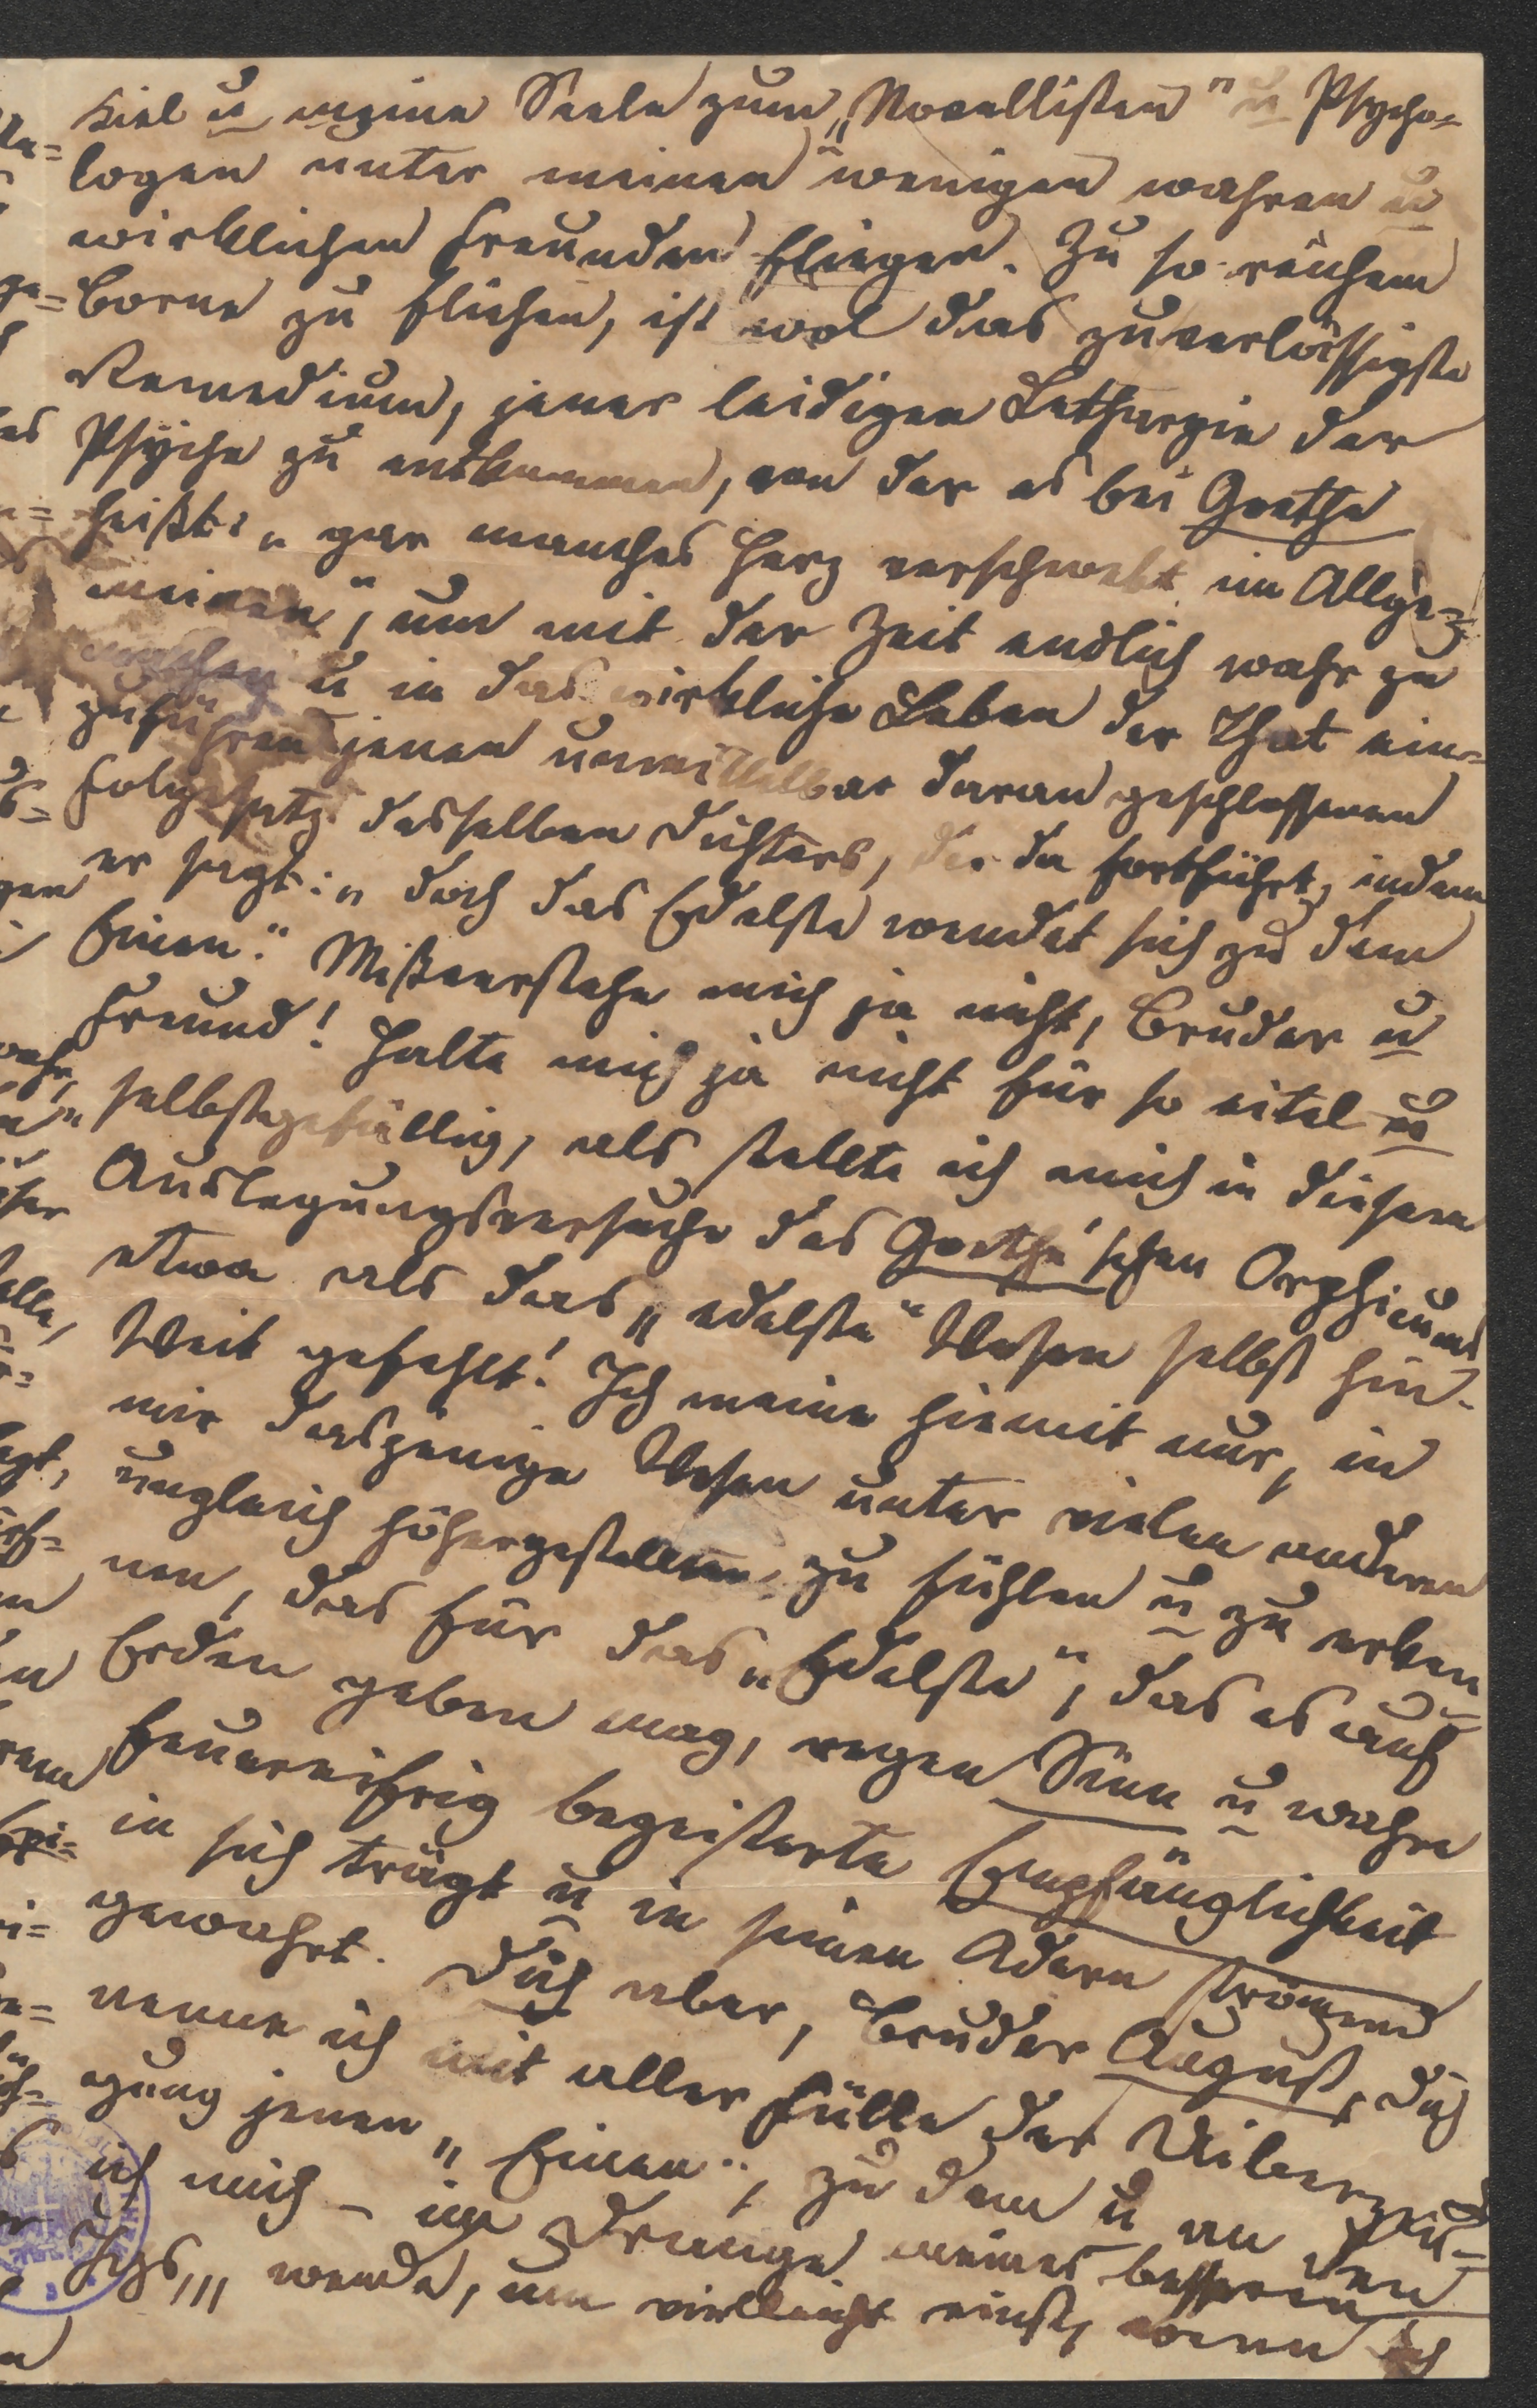 kiel u meine Seele zum „Novellisten" u Psycho-
logen unter meinen wenigen wahren u
wirklichen Freunden fliegen. Zu so reichem
Borne zu fliehen, ist wol das zuverlässigste
Remedium, jener leidigen Lethargie der
Psyche zu entkommen, von der es bei Goethe
heißt: „gar manches Herz verschwebt im Allge-
meinen", um mit der Zeit endlich wahr zu
machen u in das wirkliche Leben der That ein-
zuführen jenen unmittelbar daran geschlossenen
Folgesatz desselben Dichters, der da fortfährt, indem
er sagt: „doch das Edelste wendet sich zu dem
Einen." Mißverstehe mich ja nicht, Bruder u
Freund! Halte mich ja nicht für so eitel u
selbstgefällig, als stellte ich mich in diesem
Auslegungsversuche des Goethe'schen Orphicums
etwa als das „edelste" Wesen selbst hin.
Weit gefehlt! Ich meine hiemit nur, in
mir dasjenige Wesen unter vielen anderen
ungleich höhergestellten zu fühlen u zu erken-
nen, das für das „Edelste", das es auf
Erden geben mag, regen Sinn u wahre
feuereifrig begeisterte Empfänglichkeit
in sich trägt u in seinen Adern strömend
gewahrt. Dich aber, Bruder August, Dich
nenne ich mit aller Fülle der Uiberzeu-
gung jenen „Einen", zu dem u an den
ich mich – im Drange meines besseren
Ichs,,, wende, um vielleicht einst, wenn ich